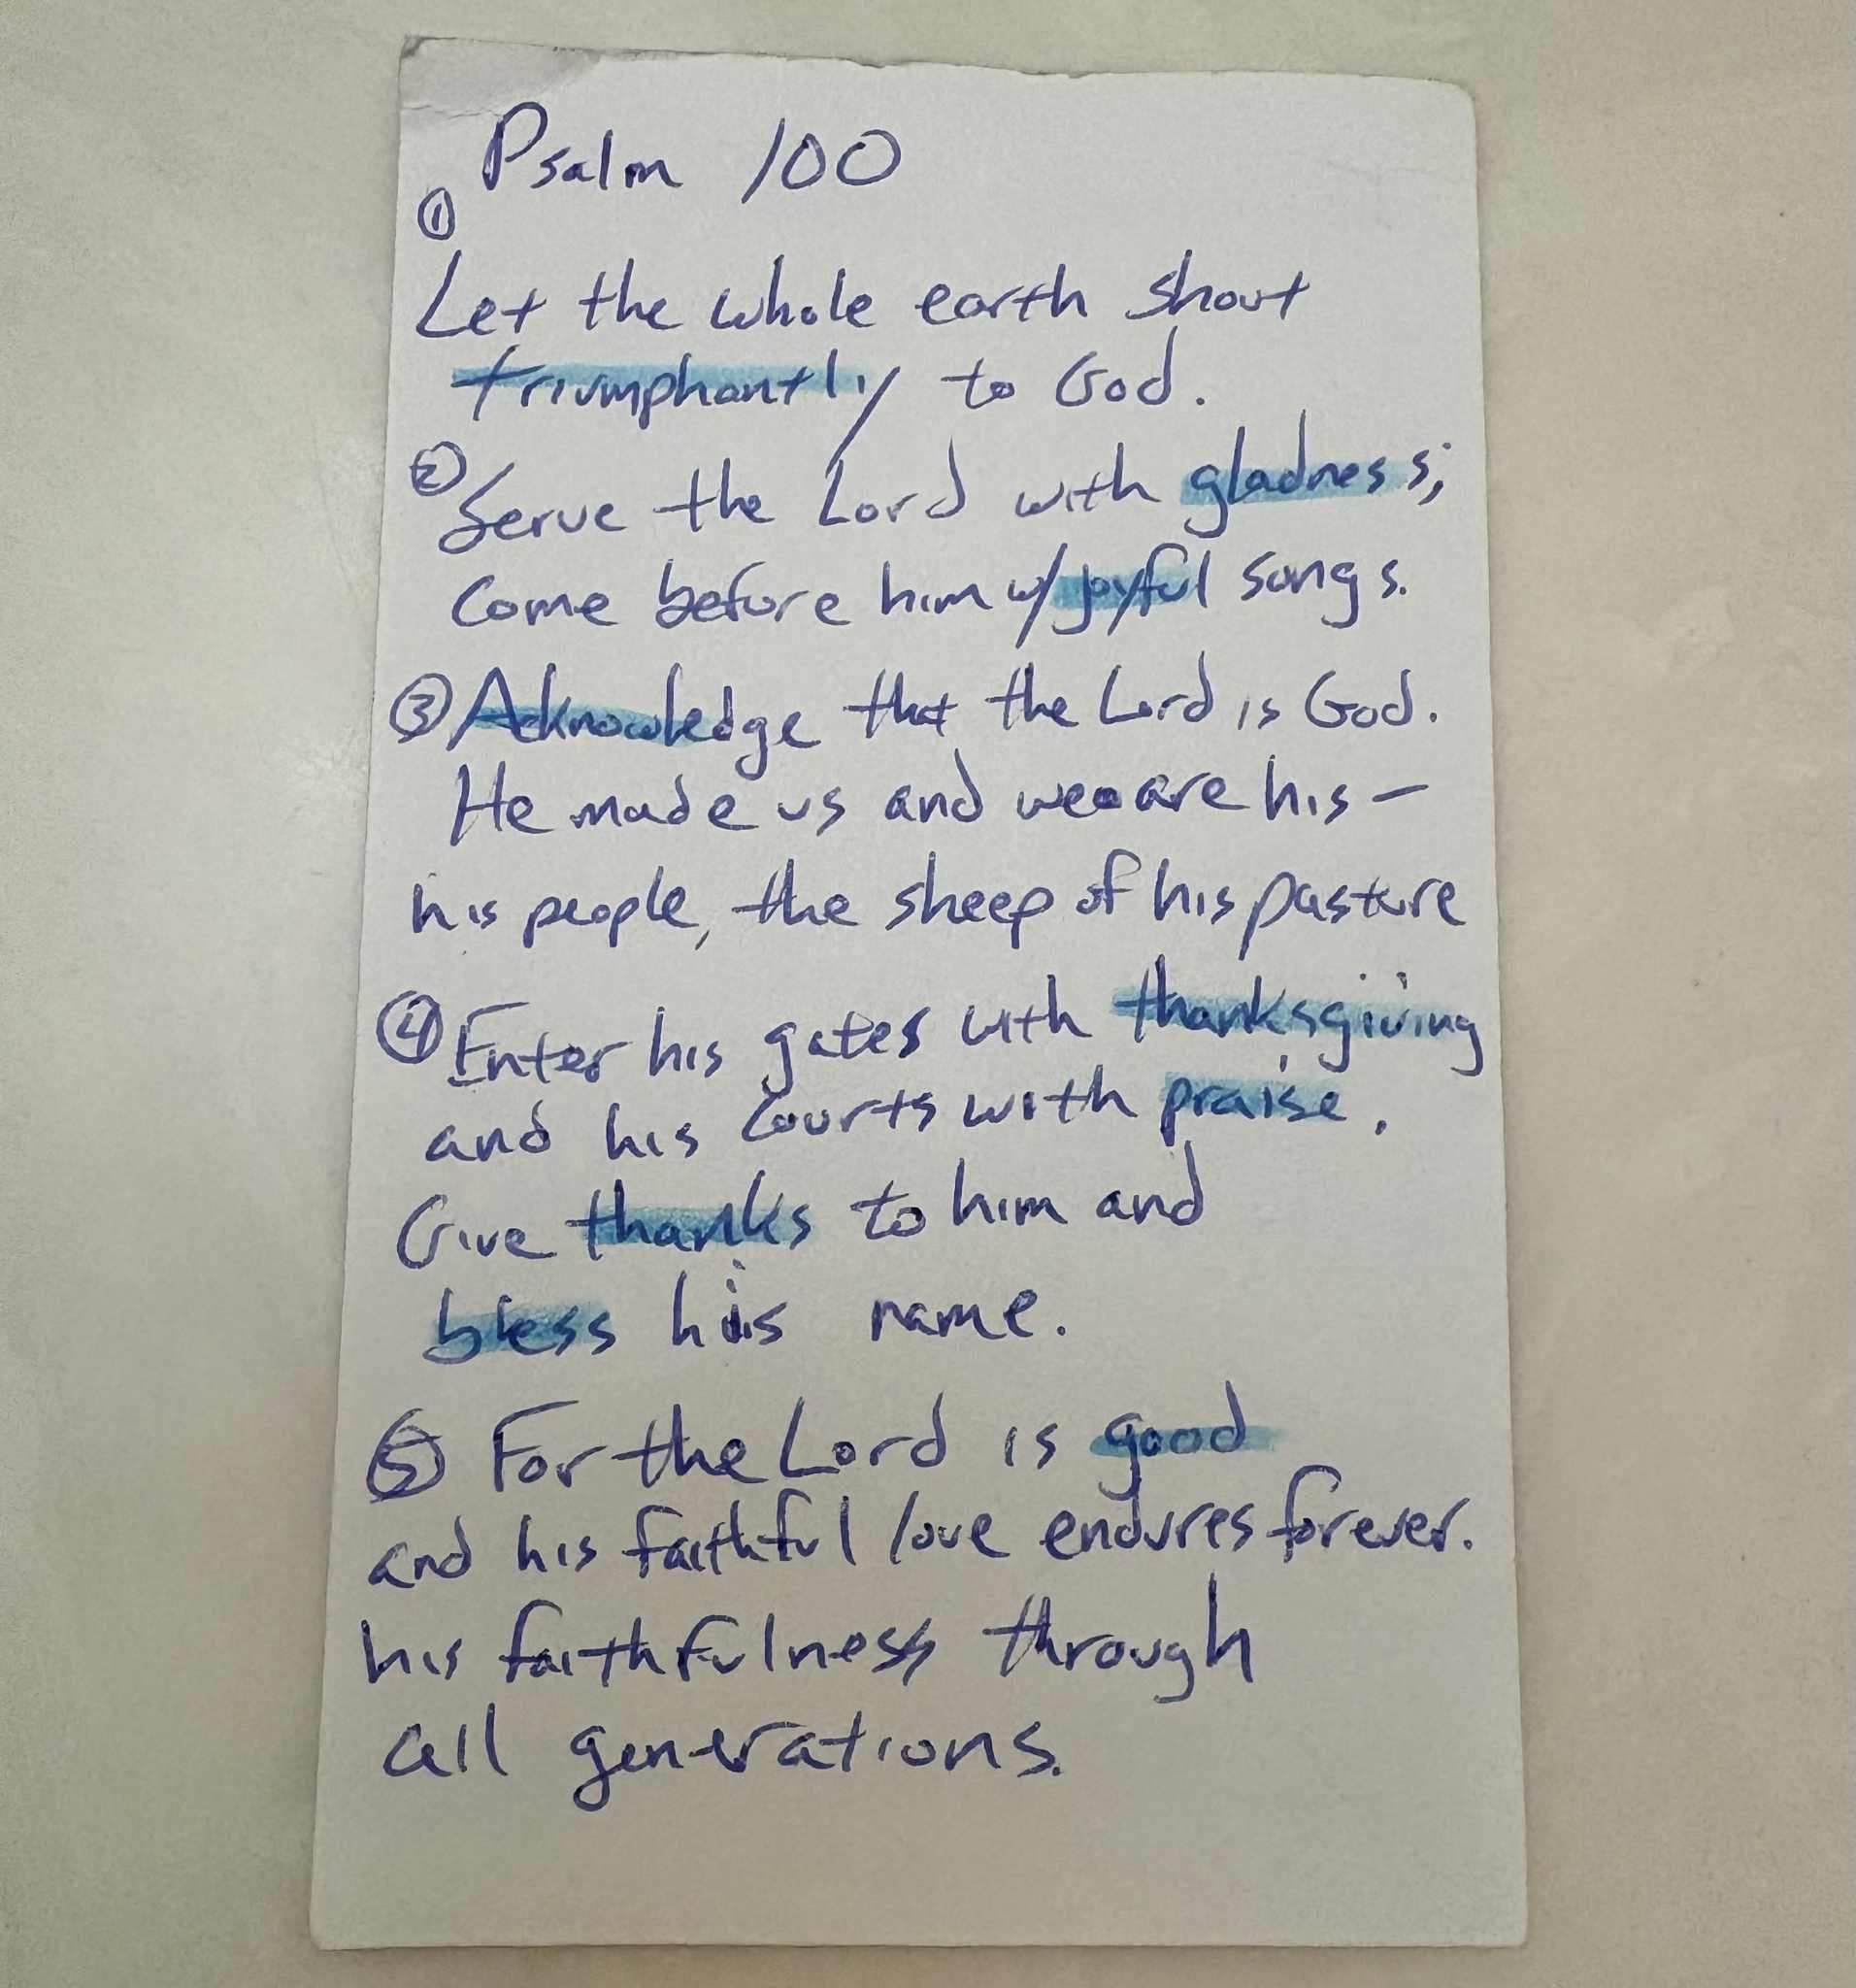 Psalm 100
①
Let the whole earth shout
triumphantly to God.
② Serve the Lord with gladness;
Come before him w/ joyful songs.
③ Acknowledge that the Lord is God.
He made us and we are his –
his people, the sheep of his pasture
④ Enter his gates with thanksgiving
and his courts with praise.
Give thanks to him and
bless his name.
⑤ For the Lord is good
and his faithful love endures forever.
his faithfulness through
all generations.